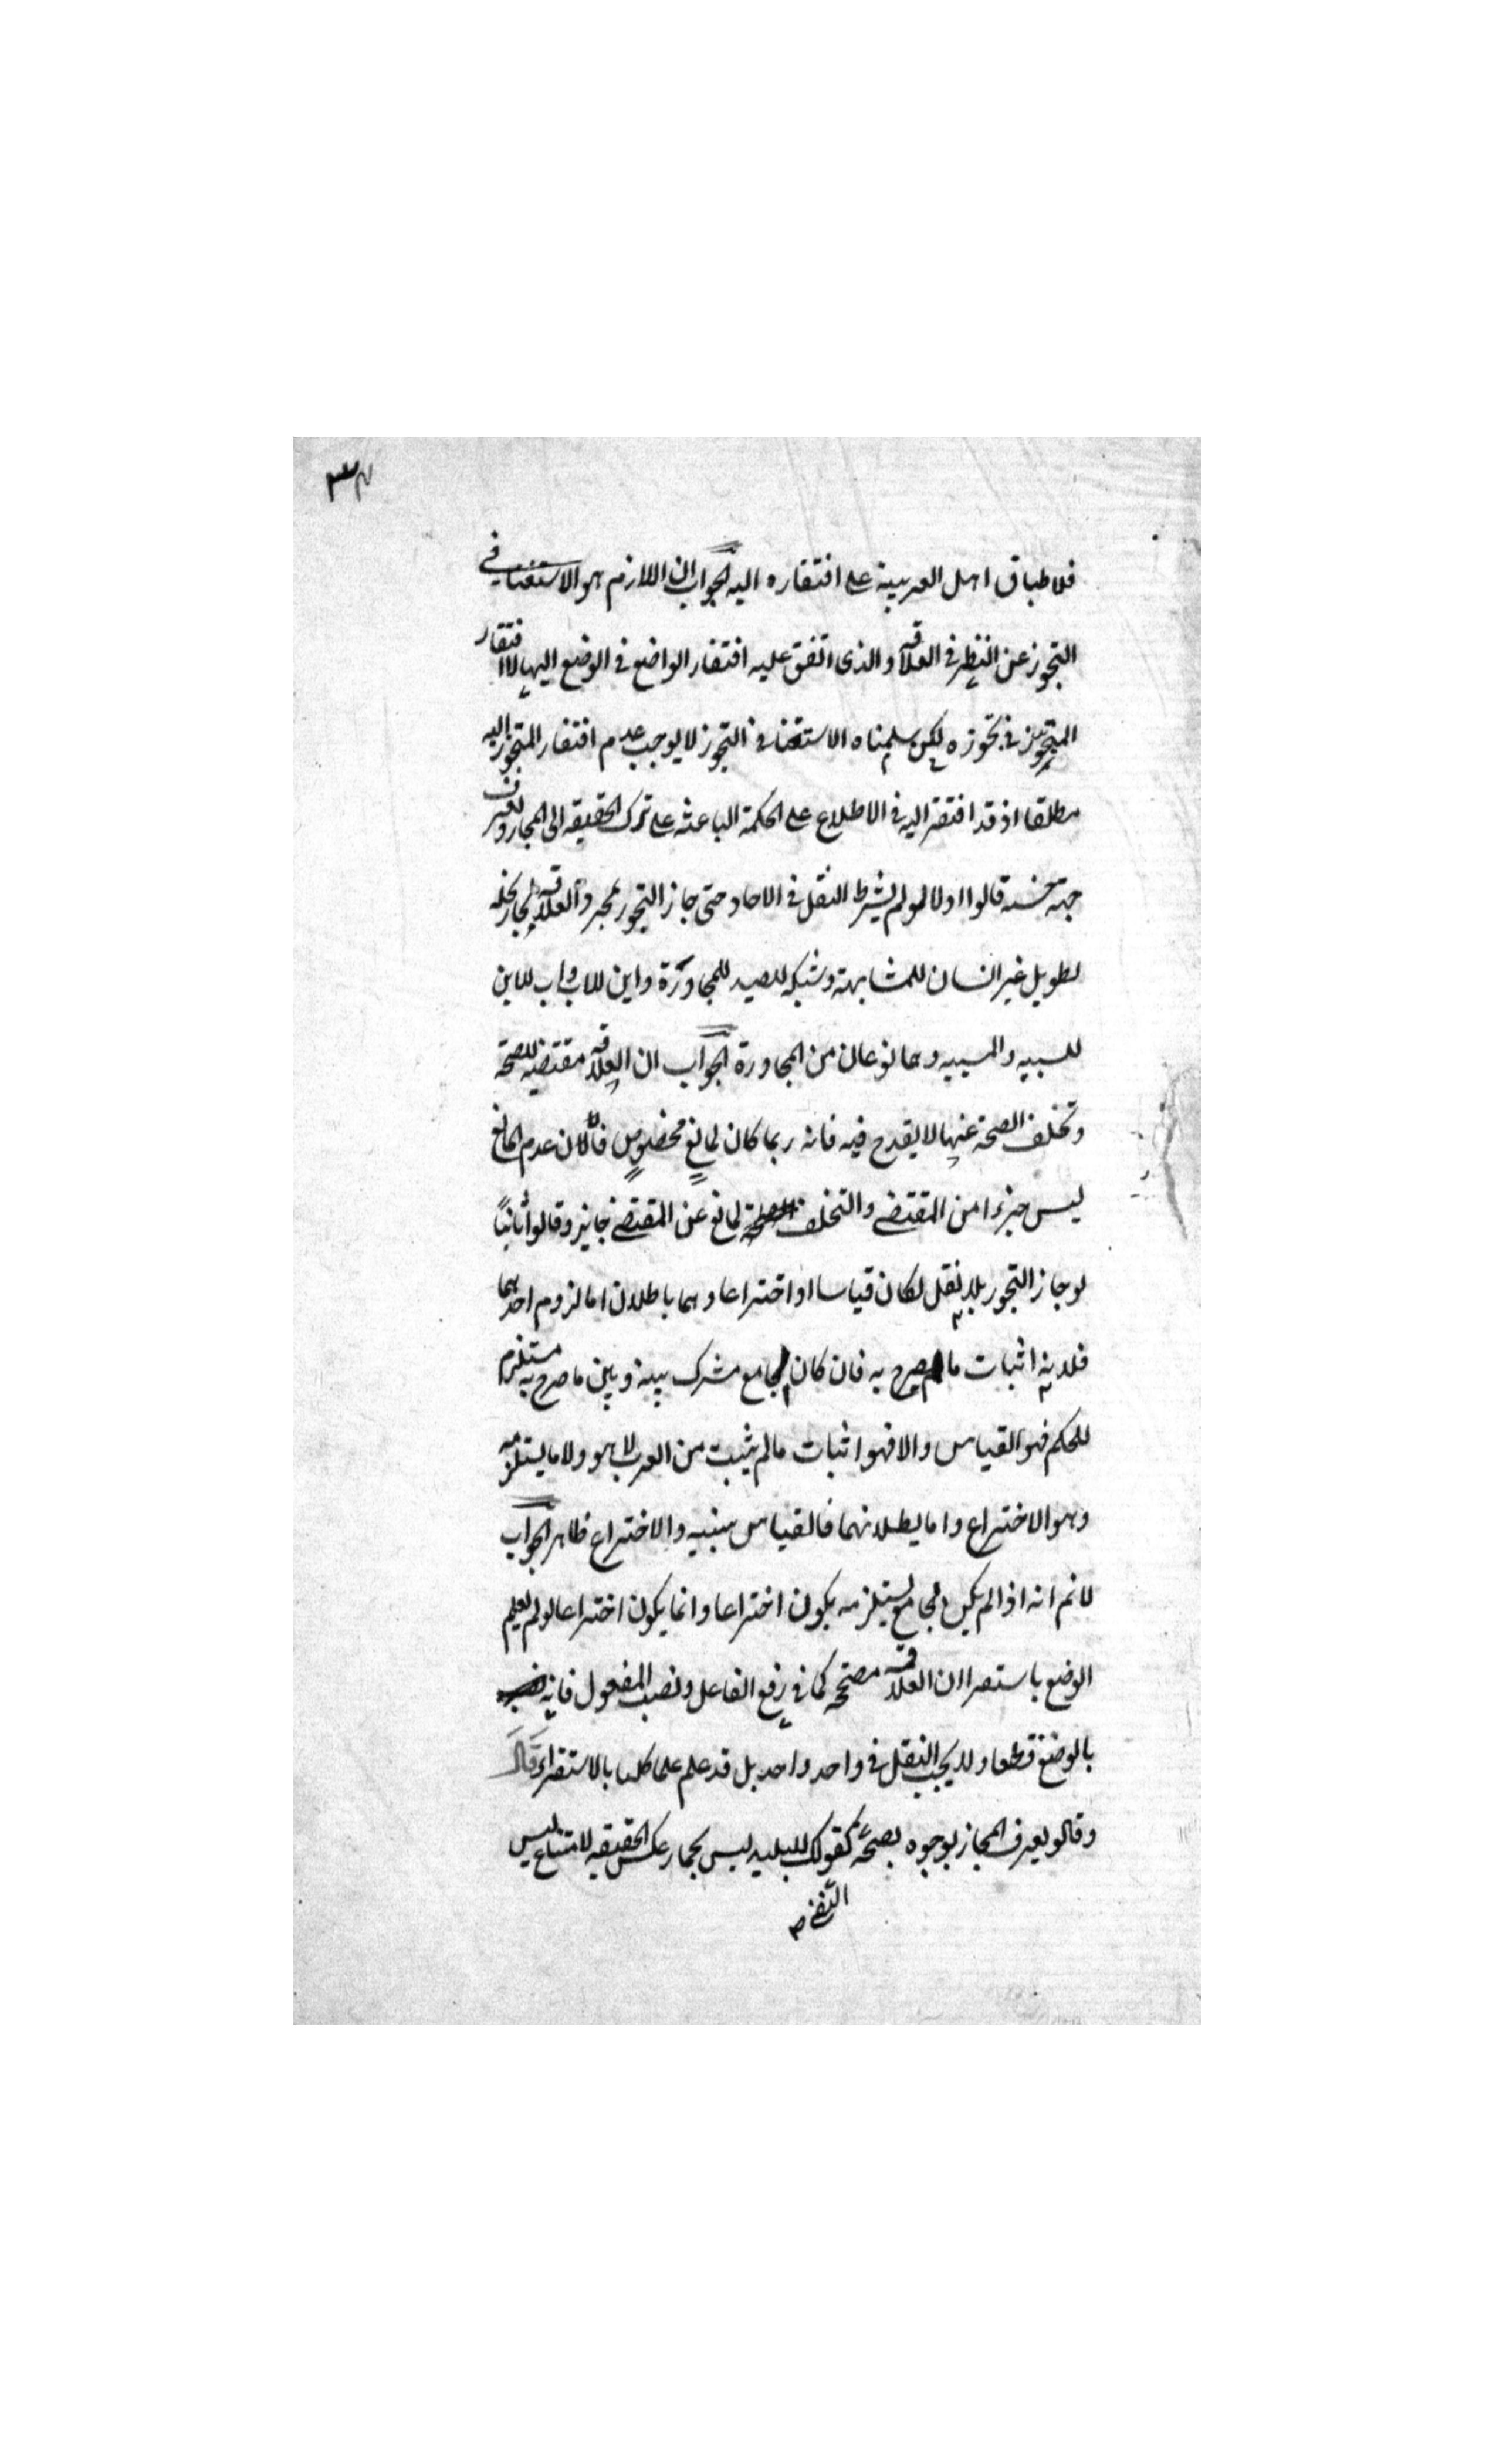 ٣٤
فلاطباق اهل العربية على افتقاره اليه الجواب ان اللازم هو الاستغنا في
التجوز عن النظر في العلاقه والذى اتفق عليه افتقار الواضع في الوضع اليها لا افتقار
المتجوز في تجوزه لكن سلمناه الاستغنا في التجوز لا يوجب عدم افتقار المتجوز اليه
مطلقا اذ قد افتقر اليه في الاطلاع على الحكمة الباعثه على ترك الحقيقه الى المجاز وتعرف
جهة حسنه قالوا اولا لو لم يشترط النقل في الاحاد حتى جاز التجوز بمجرد العلاقه لجاز نخله
لطويل غير انسان للمشابهة وشبكه للصيد للمجاورة وابن للاب واب للابن
للسببيه والمسببيه وهما نوعان من المجاورة الجواب ان العلاقه مقتضيه للصحة
وتخلف الصحة عنها لا يقدح فيه فانه ربما كان لمانع مخصوص فان عدم المانع
ليس جزءا من المقتضى والتخلف لمانع عن المقتضى جايز وقالوا ثانيا
لو جاز التجوز بلا نقل لكان قياسا او اختراعا وهما باطلان اما لزوم احدهما
فلانه اثبات ما لم يصرح به فان كان لجامع مشترك بينه وبين ما صرح به مستلزم
للحكم فهو القياس والا فهو اثبات ما لم يثبت من العرب لا هو ولا ما يستلزمه
وهو الاختراع واما بطلانهما فالقياس سنبيه والاختراع ظاهر الجواب
لا نم انه اذا لم يكن لجامع يستلزمه يكون اختراعا وانما يكون اختراعا لو لم يعلم
الوضع باستقرا ان العلاقه مصححه كما في رفع الفاعل ونصب المفعول فانه
بالوضع قطعا ولا يجب النقل في واحد واحد بل قد علم علما كليا بالاستقراء قال
وقالو يعرف المجاز بوجوه بصحة كقولك للبليد ليس بحمار عكس الحقيقه لامتناع ليس
النفي